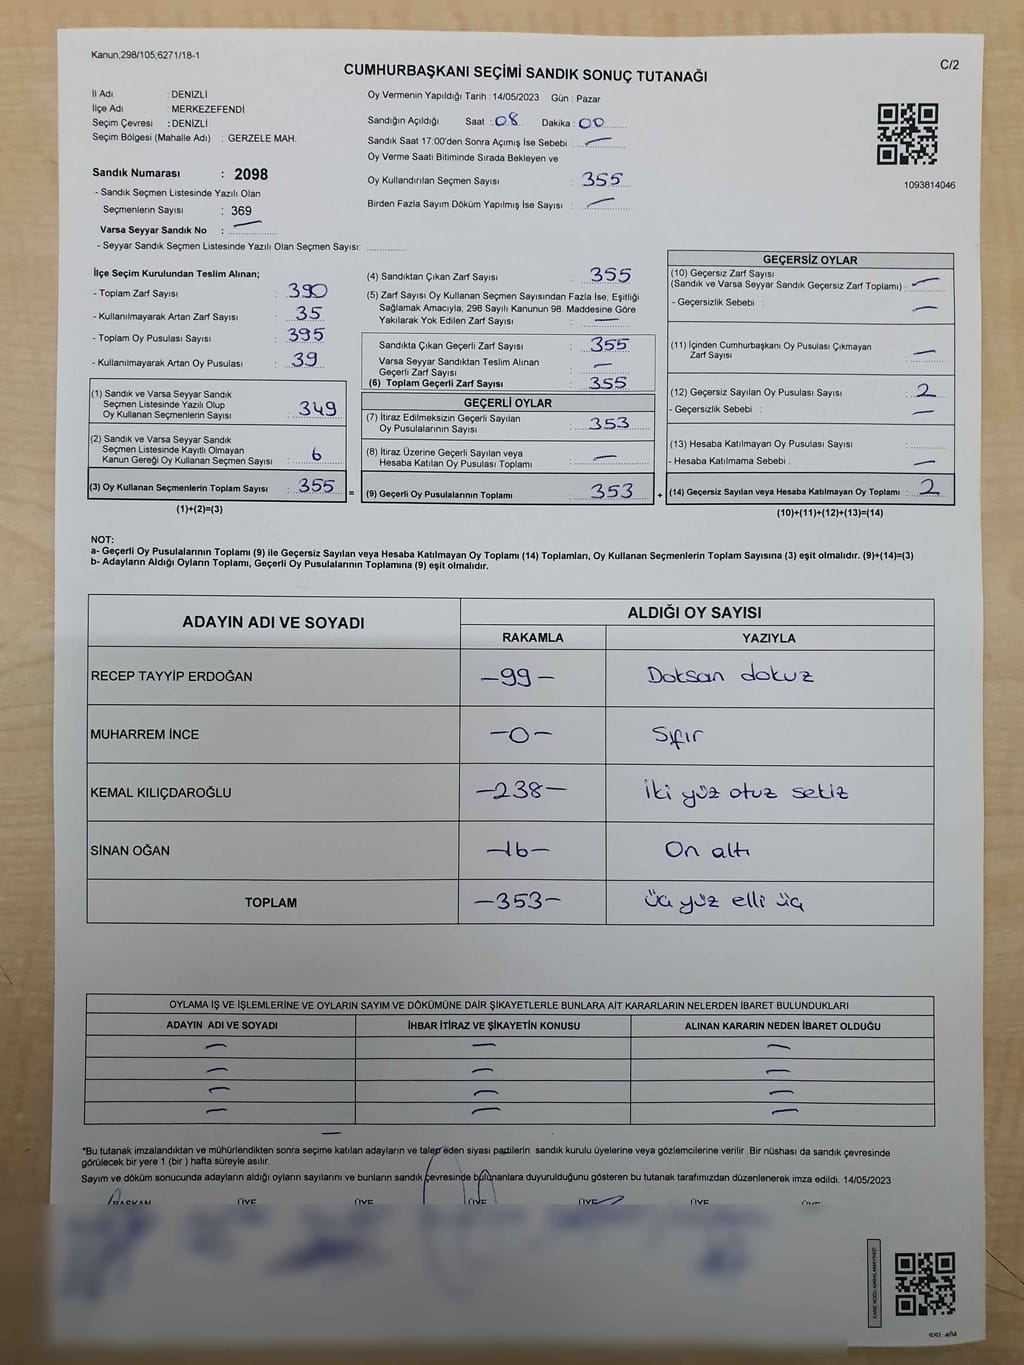 Kanun;298/105;6271/18-1
C/2
CUMHURBAŞKANI SEÇİMİ SANDIK SONUÇ TUTANAĞI
İl Adı : DENİZLİ
İlçe Adı : MERKEZEFENDİ
Seçim Çevresi : DENİZLİ
Seçim Bölgesi (Mahalle Adı) : GERZELE MAH.
Sandık Numarası : 2098
- Sandık Seçmen Listesinde Yazılı Olan
Seçmenlerin Sayısı : 369
Varsa Seyyar Sandık No : —
- Seyyar Sandık Seçmen Listesinde Yazılı Olan Seçmen Sayısı: ............
Oy Vermenin Yapıldığı Tarih : 14/05/2023 Gün : Pazar
Sandığın Açıldığı Saat : 08 Dakika : 00
Sandık Saat 17:00'den Sonra Açımış İse Sebebi : —
Oy Verme Saati Bitiminde Sırada Bekleyen ve
Oy Kullandırılan Seçmen Sayısı : 355
Birden Fazla Sayım Döküm Yapılmış İse Sayısı : —
1093814046
İlçe Seçim Kurulundan Teslim Alınan;
- Toplam Zarf Sayısı : 390
- Kullanılmayarak Artan Zarf Sayısı : 35
- Toplam Oy Pusulası Sayısı : 395
- Kullanılmayarak Artan Oy Pusulası : 39
(1) Sandık ve Varsa Seyyar Sandık
Seçmen Listesinde Yazılı Olup
Oy Kullanan Seçmenlerin Sayısı : 349
(2) Sandık ve Varsa Seyyar Sandık
Seçmen Listesinde Kayıtlı Olmayan
Kanun Gereği Oy Kullanan Seçmen Sayısı : 6
(3) Oy Kullanan Seçmenlerin Toplam Sayısı : 355 =
(1)+(2)=(3)
(4) Sandıktan Çıkan Zarf Sayısı : 355
(5) Zarf Sayısı Oy Kullanan Seçmen Sayısından Fazla İse, Eşitliği
Sağlamak Amacıyla; 298 Sayılı Kanunun 98. Maddesine Göre
Yakılarak Yok Edilen Zarf Sayısı : —
Sandıkta Çıkan Geçerli Zarf Sayısı : 355
Varsa Seyyar Sandıktan Teslim Alınan
Geçerli Zarf Sayısı : —
(6) Toplam Geçerli Zarf Sayısı : 355
GEÇERLİ OYLAR
(7) İtiraz Edilmeksizin Geçerli Sayılan
Oy Pusulalarının Sayısı : 353
(8) İtiraz Üzerine Geçerli Sayılan veya
Hesaba Katılan Oy Pusulası Toplamı : —
(9) Geçerli Oy Pusulalarının Toplamı : 353 +
GEÇERSİZ OYLAR
(10) Geçersiz Zarf Sayısı
(Sandık ve Varsa Seyyar Sandık Geçersiz Zarf Toplamı) : —
- Geçersizlik Sebebi : —
(11) İçinden Cumhurbaşkanı Oy Pusulası Çıkmayan
Zarf Sayısı —
(12) Geçersiz Sayılan Oy Pusulası Sayısı : 2
- Geçersizlik Sebebi : —
(13) Hesaba Katılmayan Oy Pusulası Sayısı :
- Hesaba Katılmama Sebebi : —
(14) Geçersiz Sayılan veya Hesaba Katılmayan Oy Toplamı : 2
(10)+(11)+(12)+(13)=(14)
NOT:
a- Geçerli Oy Pusulalarının Toplamı (9) ile Geçersiz Sayılan veya Hesaba Katılmayan Oy Toplamı (14) Toplamları, Oy Kullanan Seçmenlerin Toplam Sayısına (3) eşit olmalıdır. (9)+(14)=(3)
b- Adayların Aldığı Oyların Toplamı, Geçerli Oy Pusulalarının Toplamına (9) eşit olmalıdır.
ADAYIN ADI VE SOYADI
ALDIĞI OY SAYISI
RAKAMLA YAZIYLA
RECEP TAYYİP ERDOĞAN —99— Doksan dokuz
MUHARREM İNCE —0— Sıfır
KEMAL KILIÇDAROĞLU —238— iki yüz otuz sekiz
SİNAN OĞAN —16— On altı
TOPLAM —353— üç yüz elli üç
OYLAMA İŞ VE İŞLEMLERİNE VE OYLARIN SAYIM VE DÖKÜMÜNE DAİR ŞİKAYETLERLE BUNLARA AİT KARARLARIN NELERDEN İBARET BULUNDUKLARI
ADAYIN ADI VE SOYADI İHBAR İTİRAZ VE ŞİKAYETİN KONUSU ALINAN KARARIN NEDEN İBARET OLDUĞU
— — —
— — —
— — —
— — —
*Bu tutanak imzalandıktan ve mühürlendikten sonra seçime katılan adayların ve talep eden siyasi partilerin sandık kurulu üyelerine veya gözlemcilerine verilir .Bir nüshası da sandık çevresinde
görülecek bir yere 1 (bir ) hafta süreyle asılır.
Sayım ve döküm sonucunda adayların aldığı oyların sayılarını ve bunların sandık çevresinde bulunanlara duyurulduğunu gösteren bu tutanak tarafımızdan düzenlenerek imza edildi. 14/05/2023
BAŞKAN ÜYE ÜYE ÜYE ÜYE ÜYE